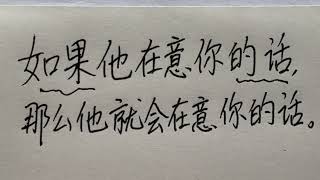 如果他在意你的话，
那么他就会在意你的话。